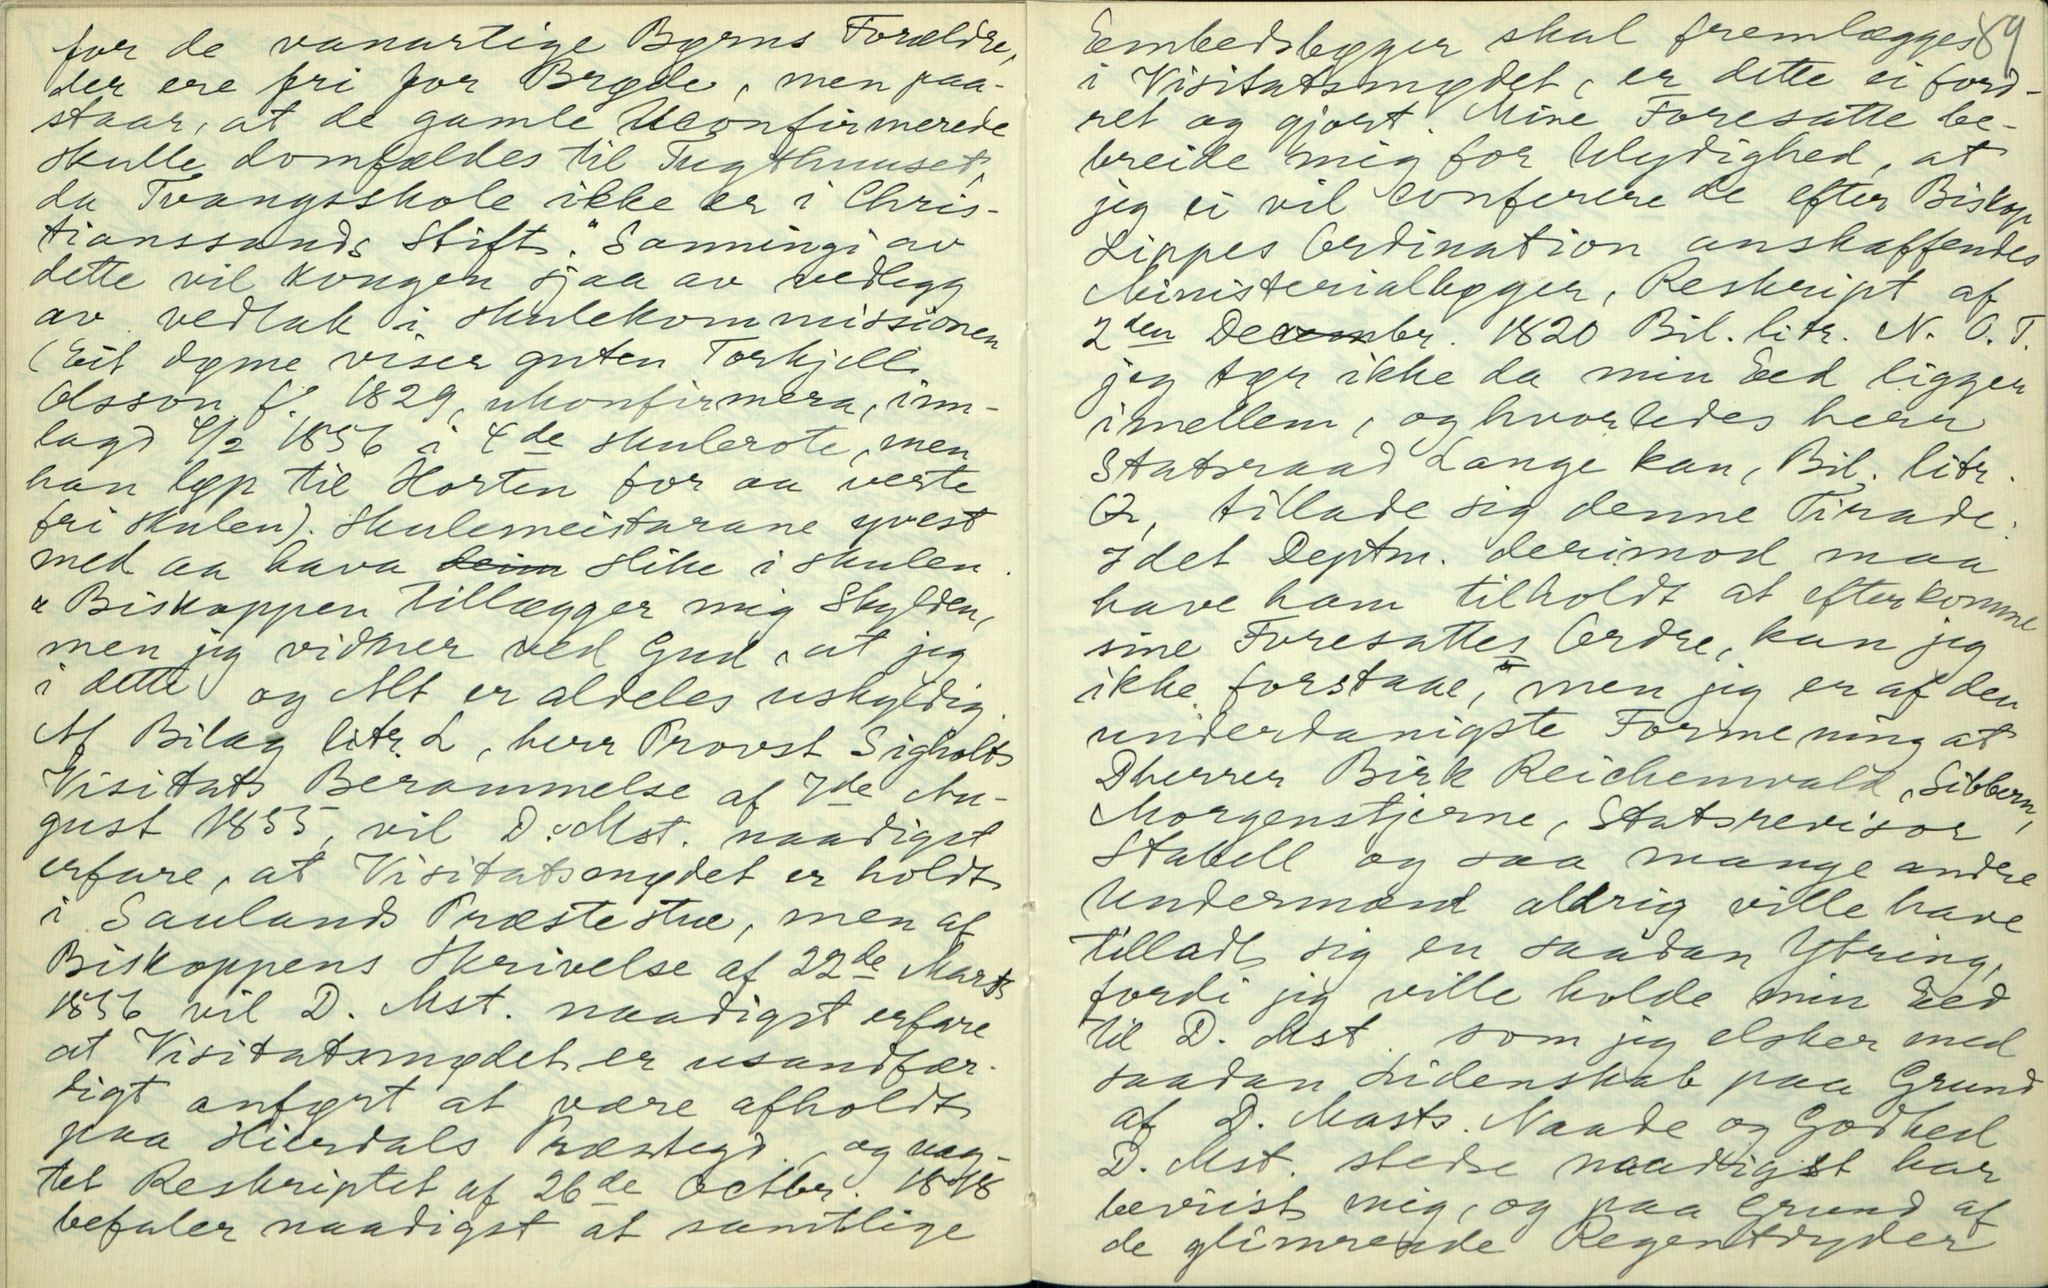 for de vanartige Børns Forældre,
der ere fri for Brøde, men paa-
staar, at de gamle Uconfirmerede
skulle domfældes til Tugthuuset,
da Tvangsskole ikke er i Chris-
tianssands Stift." Sanningi av
dette vil kongen sjaa av vedlegg
av vedtak i skulekommissionen
(Eit døme viser guten Torkjell
Olsson f. 1829, ukonfirmera, inn-
lagd 4/2 1856 i 4de skulerote, men
han løp til Horten for aa verte
fri skulen). Skulemeistarane yvest
med aa hava deim slike i skulen.
"Biskoppen tillægger mig Skylden,
men jeg vidner ved Gud, at jeg
i dette og Alt er aldeles uskyldig.
Af Bilag litr. L, herr Provst Sigholts
Visitats Berammelse af 7de Au-
gust 1855, vil D. Mst. naadigst
erfare, at Visitatsmødet er holdt
i Saulands Præstestue, men af
Biskoppens Skrivelse af 22de Marts
1856 vil D. Mst. naadigst erfare
at Visitatsmødet er usandfær-
digt anført at være afholdt
paa Hierdals Præstegd. og uag-
tet Reskriptet af 26de Octbr. 1818
befaler naadigst at samtlige
89
Eembedsbøgger skal fremlægges
i Visitatsmødet, er dette ei ford-
ret og gjort. Mine Foresatte be-
breide mig for Ulydighed, at
jeg ei vil conferere de efter Biskop
Lippes Ordination anskaffendes
Ministerialbøgger, Reskript af
2den Decembr. 1820 Bil. litr. N. O. T.
jeg tør ikke da min Eed ligger
imellem, og hvorledes herr
Statsraad Lange kan, Bil. litr.
Q, tillade sig denne Tirade.
Idet Deptm. derimod maa
have ham tilholdt at efterkomme
sine Foresattes Ordre, kan jeg
ikke forstaae," men jeg er af den
underdanigste Formening at
Dherrer Birk Reichenwald, Sibbern,
Morgenstjerne, Statsrevisor
Stabell og saa mange andre
Undermænd aldrig ville have
tilladt sig en saadan Ytring,
fordi jeg ville holde min Eed
til D. Mst. som jeg elsker med
saadan Lidenskab paa Grund
af D. Masts. Naade og Godhed
D. Mst. stedse naadigst har
beviist mig, og paa Grund af
de glimrende Regentdyder